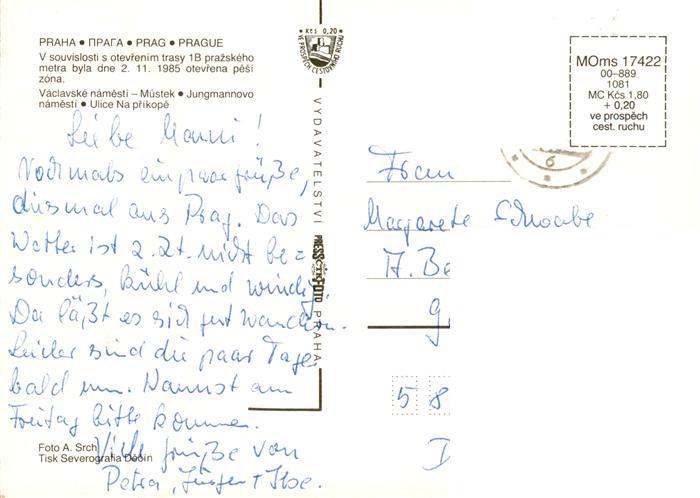 PRAHA ● ПРАГА ● PRAG ● PRAGUE
V souvislosti s otevřením trasy 1B pražského
metra byla dne 2. 11. 1985 otevřena pěší
zóna.
Václavské náměstí – Můstek ● Jungmannovo
náměstí ● Ulice Na příkopě
Liebe Mammi!
Nochmals ein paar Grüße,
diesmal aus Prag. Das
Wetter ist z. Zt. nicht be=
sonders, kühl und windig.
Da läßt es sich gut wandern.
Leider sind die paar Tage
bald um. Kannst am
Freitag bitte kommen.
Viele Grüße von
Petra, Jürgen + Ilse.
Foto A. Srch
Tisk Severografia Děčín
Kčs 0,20
VE PROSPĚCH CESTOVNÍHO RUCHU
VYDAVATELSTVÍ PRESSFOTO PRAHA
ČTK
MOms 17422
00–889
1081
MC Kčs 1,80
+ 0,20
ve prospěch
cest. ruchu
6
Frau
Margarete Schwabe
A. Be
g
5 8
D